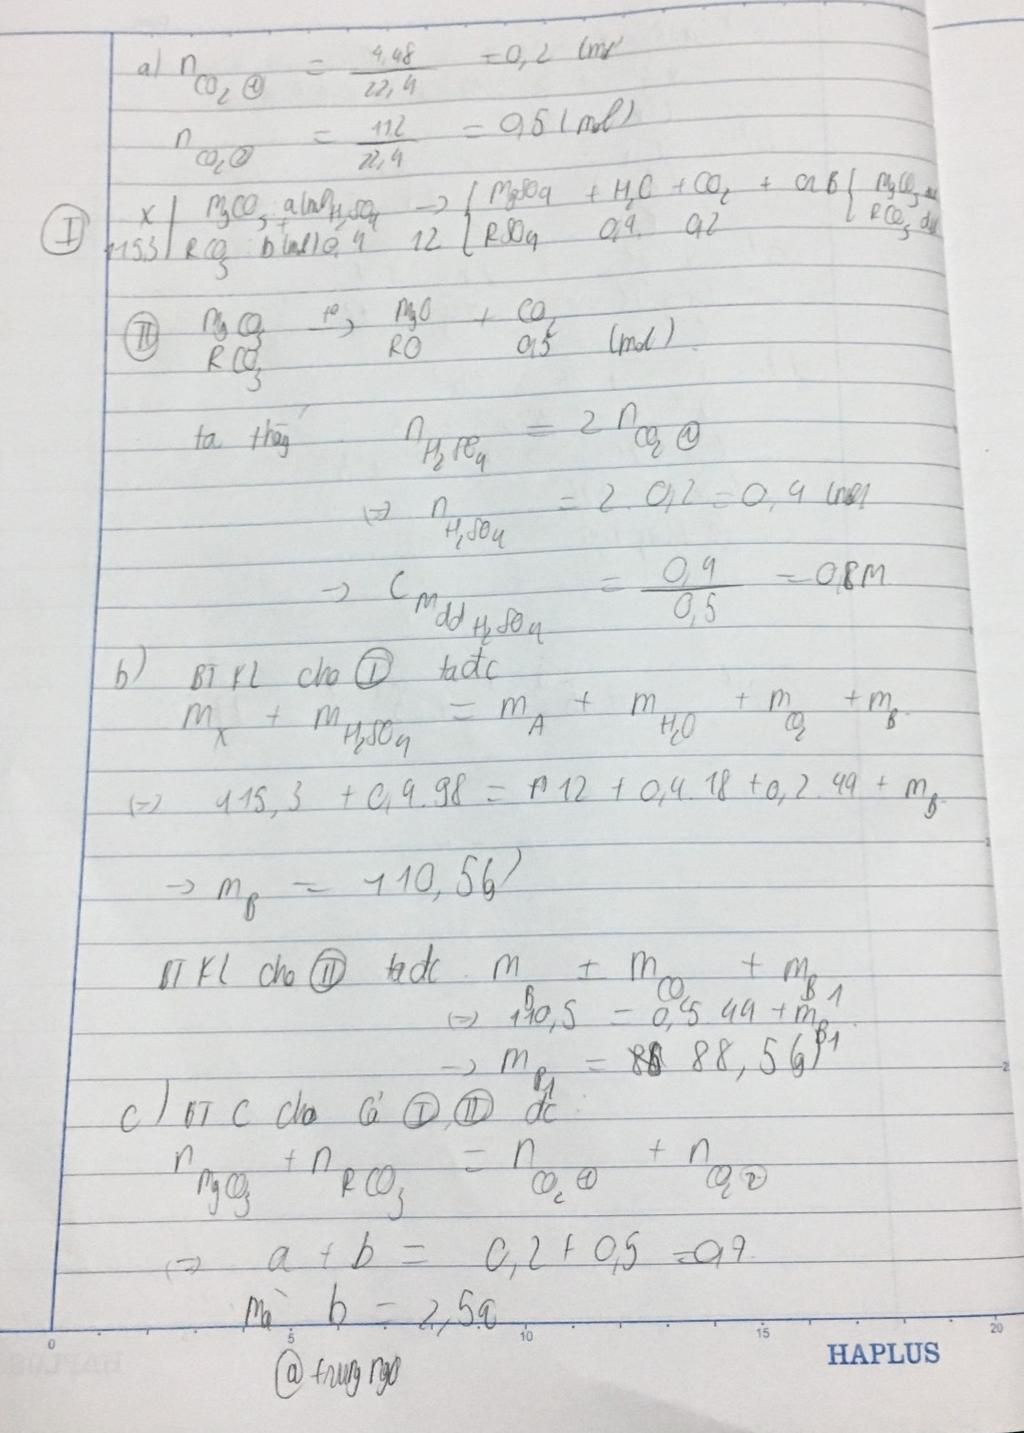 a) n CO2 ① = 4,48 / 22,4 = 0,2 (mol
n CO2 ② = 112 / 22,4 = 0,5 (mol)
Ⅰ X { MgCO3 a(mol) + H2SO4 → { MgSO4 + H2O + CO2 + crB { MgCO3 dư
115,3 RCO3 b(mol) 0,4 12 { RSO4 0,4 0,2 RCO3 dư
Ⅱ MgCO3 t° → MgO + CO2
RCO3 RO 0,5 (mol)
ta thấy n H2SO4 = 2 n CO2 ①
⇔ n H2SO4 = 2. 0,2 = 0,4 (mol
→ C M dd H2SO4 = 0,4 / 0,5 = 0,8M
b) BTKL cho Ⅰ ta đc
mX + mH2SO4 = mA + mH2O + mCO2 + mB
⇔ 115,3 + 0,4.98 = 12 + 0,4.18 + 0,2.44 + mB
→ mB = 110,5g
BTKL cho Ⅱ ta đc mB = mCO2 + mB1
⇔ 110,5 = 0,5.44 + mB1
→ mB1 = 88,5g
c) BT C cho cả Ⅰ, Ⅱ đc
n MgCO3 + n RCO3 = n CO2 ① + n CO2 ②
⇔ a + b = 0,2 + 0,5 = 0,7
Mà b = 2,5a
0 5 10 15 20
HAPLUS
@trung ngo